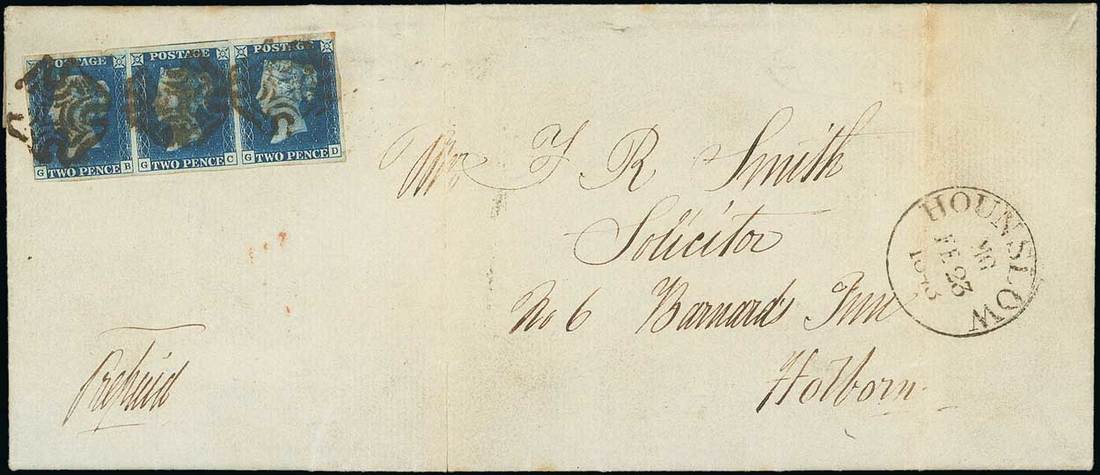 POSTAGE POSTAGE POSTAGE
G TWO PENCE B G TWO PENCE C G TWO PENCE D
Mr J R Smith
Solicitor
No 6 Barnards Inn
Holborn
Prepaid
HOUNSLOW
MG
FE 23
1843